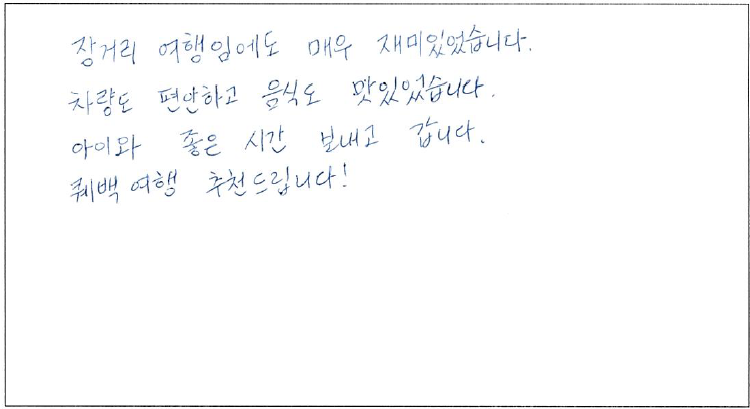 장거리 여행임에도 매우 재미있었습니다.
차량도 편안하고 음식도 맛있었습니다.
아이와 좋은 시간 보내고 갑니다.
퀘백 여행 추천드립니다!